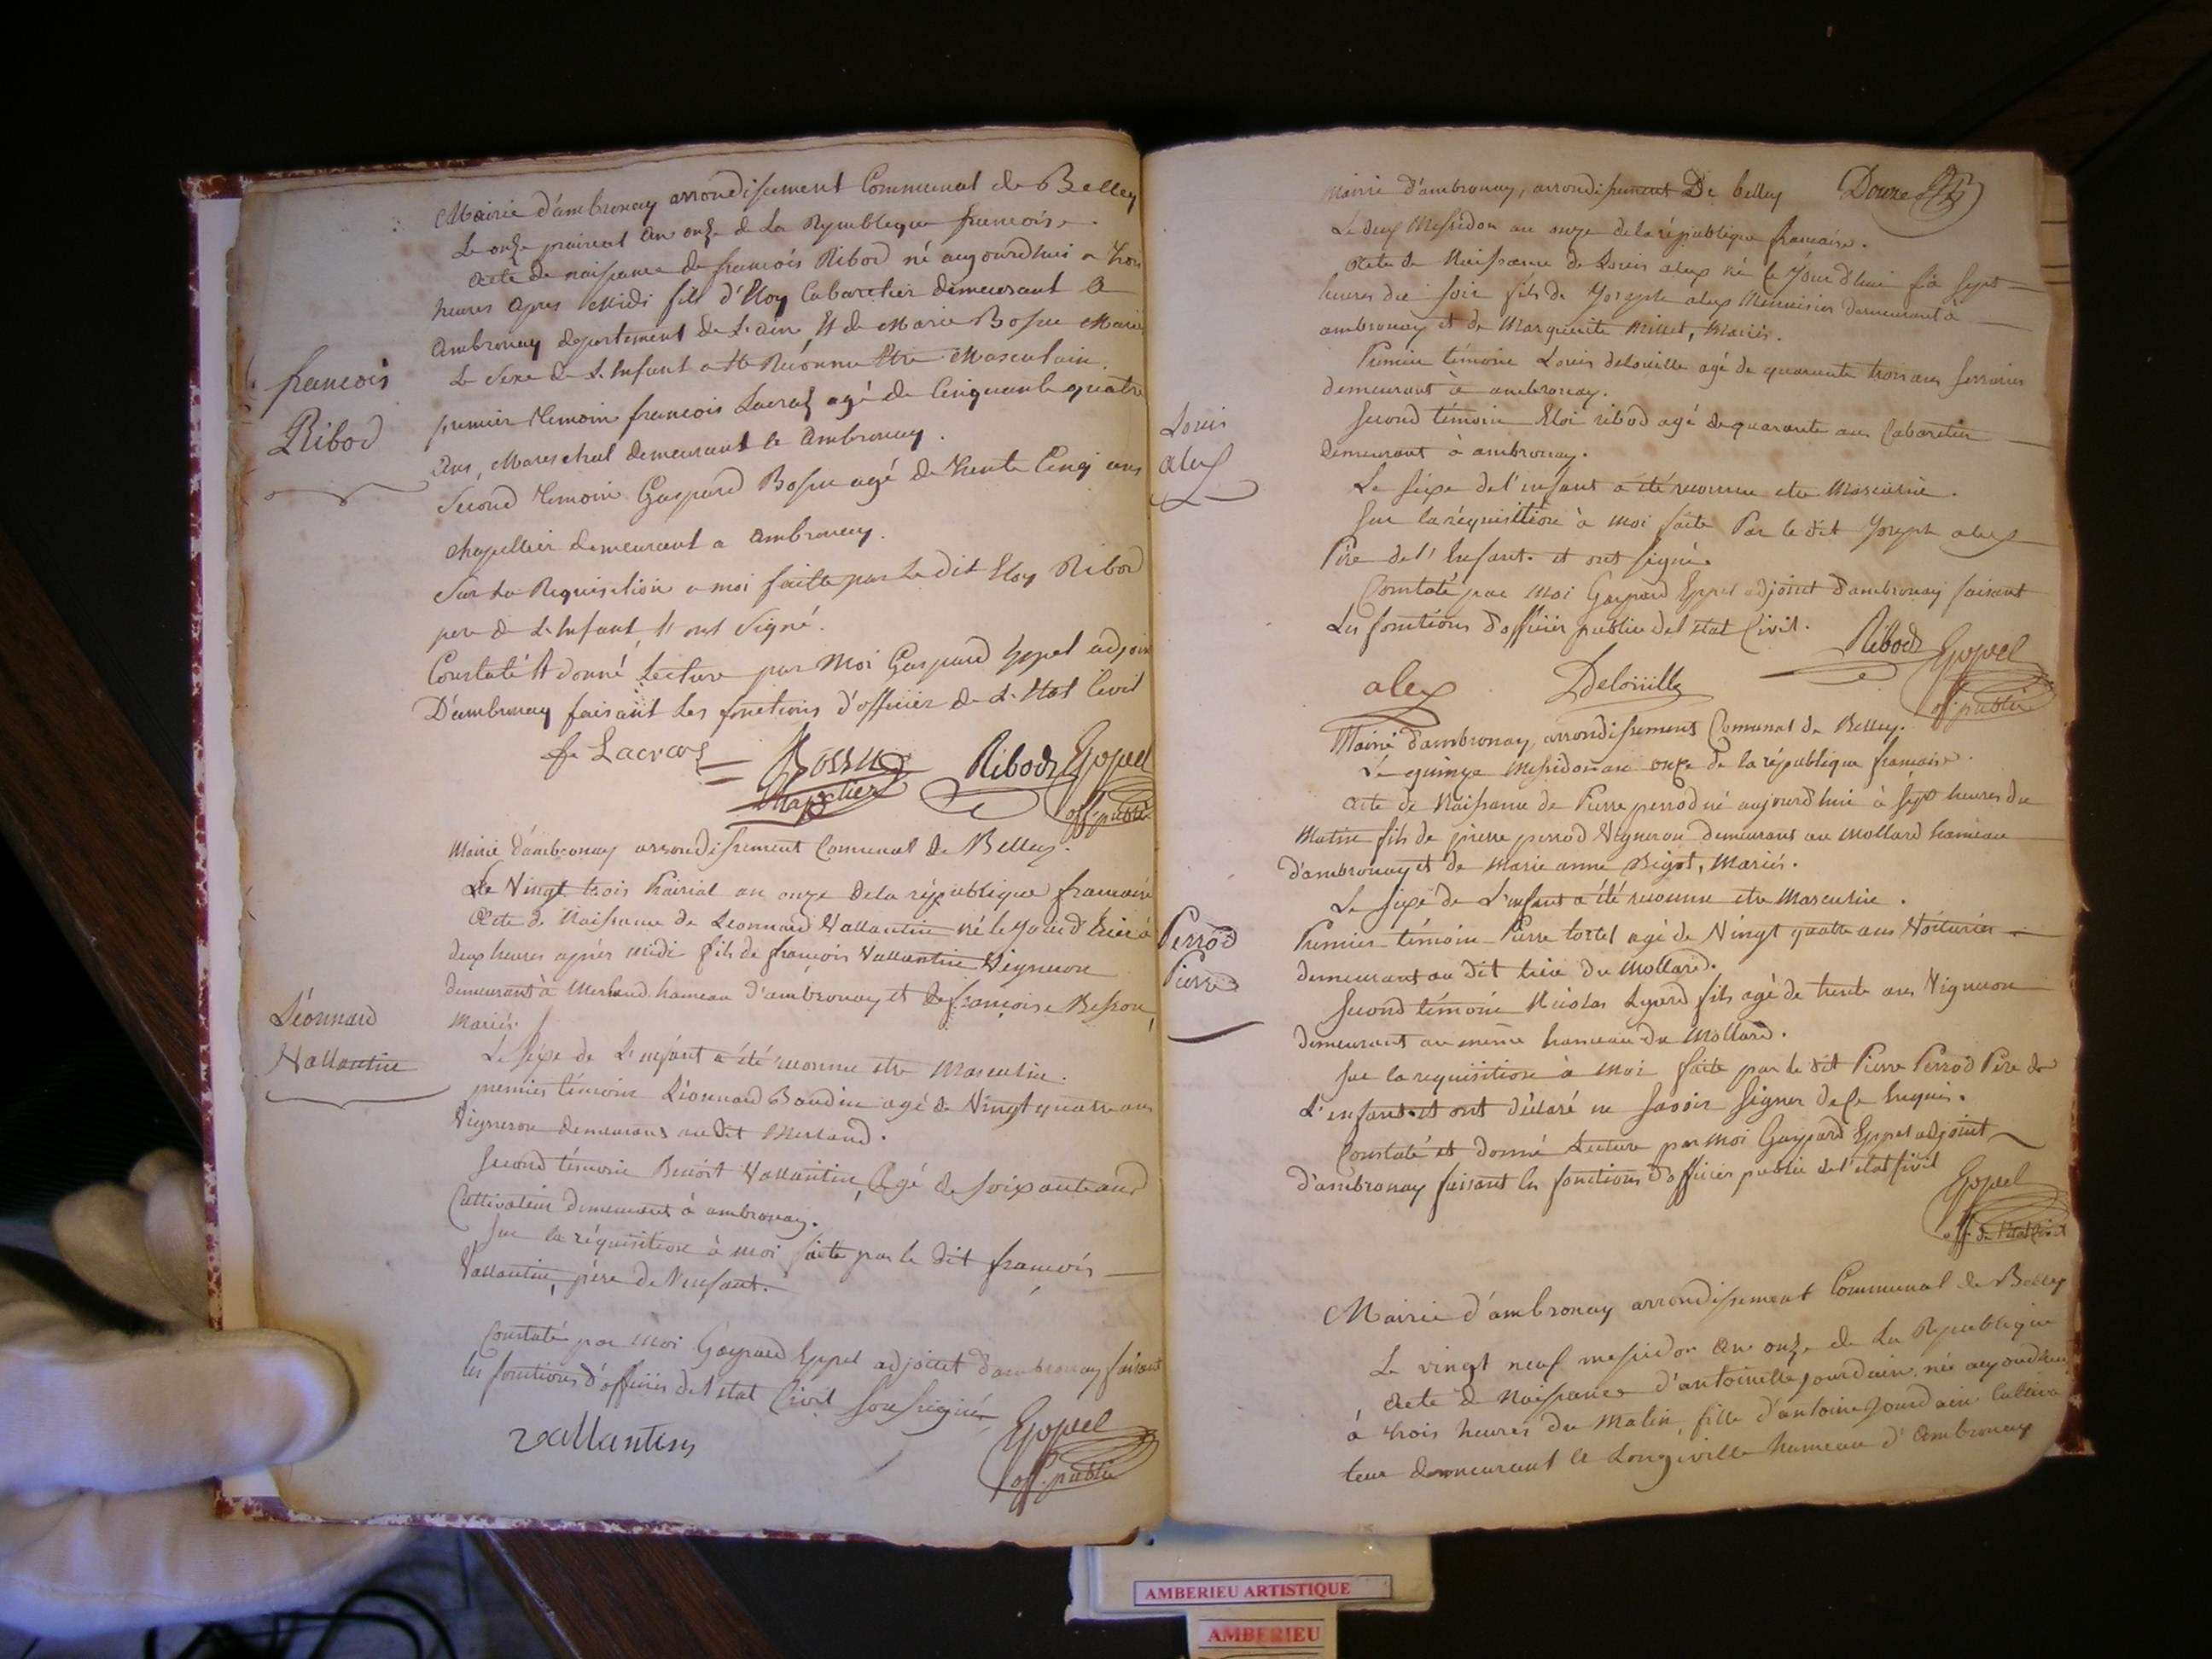 Mairie d'ambronay arrondissement Communal de Belley
Le onze prairial an onze de La Republique francoise.
Acte de naissance de francois Ribod né aujourdhuis a trois
heures apres Midi fils d'Eloy Cabaretier demeurant a
Ambronay departement de L'ain, Et de Marie Bossu Mariés
Le Sexe de L'Enfant a Ete Reconnu Etre Masculain.
francois
Ribod
premier Temoin francois Lacraz agé de Cinquante quatre
Ans, Mareschal demeurant a Ambronay.
Second Temoin Gaspard Bossu agé de Trente Cinq ans
chapellier demeurant a Ambronay.
Sur La Requisition a moi faitte par Le dit Eloy Ribod
pere de L'Enfant Et ont Signé.
Constaté Et donné Lecture par Moi Gaspard Eppel adjoin
D'ambronay faisant Les fonctions d'officier de L'Etat Civil
Lacraz Bossu Ribod Eppel
chapelier off. public
Mairie d'ambronay arrondissement Communal de Belley.
Le Vingt trois Prairial an onze de la république francaise
Acte de Naissance de Leonnard Vallantin né le jourd'huié à
deux heures aprés midi fils de francois Vallantin Vigneron
demeurant à Merland hameau d'ambronay et de françoise Besson,
Mariés.
Léonnard
Vallantin
Le Sexe de L'enfant a été reconnu etre Masculin.
premier témoin Léonnard Baudin agé de Vingt quatre ans
Vigneron demeurans au dit Merland.
Second témoin Benoit Vallantin, Agé de soixante ans
Cultivateur demeurant à ambronay.
Sur la réquisition à moi faite par le dit francois
Vallantin, père de l'enfant.
Constaté par Moi Gaspard Eppel adjoint d'ambronay faisant
les fonctions d'officier de l'etat Civil Soussigné
Vallantin Eppel
off. public
Mairie d'ambronay, arrondissement De belley Douze
Le deux Messidor an onze de la république francaise.
Acte de Naissance de Louis alex né le Jourd'hui à sept
heures du soir fils de Joseph alex Menuisier demeurant à
ambronay et de Marguerite Millet, Mariés.
Premier témoin Louis delouille agé de quarante trois ans serrurier
demeurant à ambronay.
Louis
alex
Second témoin Eloi ribod agé de quarante ans Cabaretier
demeurant à ambronay.
Le sexe de l'enfant a été reconnu etre Masculin.
Sur la réquisition à moi faite Par le dit Joseph alex
Père de l'Enfant. et ont signé.
Constaté par Moi Gaspard Eppel adjoint d'ambronay faisant
Les fonctions d'officier public de l'etat Civil.
alex Delouille Ribod Eppel
off. public
Mairie d'ambronay, arrondissement Comunal de Belley.
Le quinze Messidor an onze de la république francaise.
Acte de Naissance de Pierre perrod né aujourd'hui à sept heures du
Matin fils de pierre perrod Vigneron demeurans au Mollard hameau
d'ambronay et de Marie anne Bigot, Mariés.
Le sexe de L'enfant a été reconnu etre Masculin.
Perrod
Pierre
Premier témoin Pierre tortel agé de Vingt quatre ans Voiturier
demeurant au dit lieu du Mollard.
Second témoin Nicolas fils agé de trente ans Vigneron
demeurant au même hameau du Mollard.
Sur la requisition à moi faite par le dit Pierre Perrod Père de
L'enfant et ont déclaré ne savoir signer de ce Enquis.
Constaté et donné Lecture par moi Gaspard Eppel adjoint
d'ambronay faisant les fonctions d'officier public de l'etat sivil
Eppel
off. de l'Etat Civil
Mairie d'ambronay arrondissement Communal de Belley
Le vingt neuf messidor an onze de La Republique
Acte de Naissance d'antoinette Jourdain née aujourdhui
à trois heures du Matin, fille d'antoine Jourdain Cultiva
teur demeurant a Longeville hameau d'Ambronay
AMBERIEU ARTISTIQUE
AMBERIEU